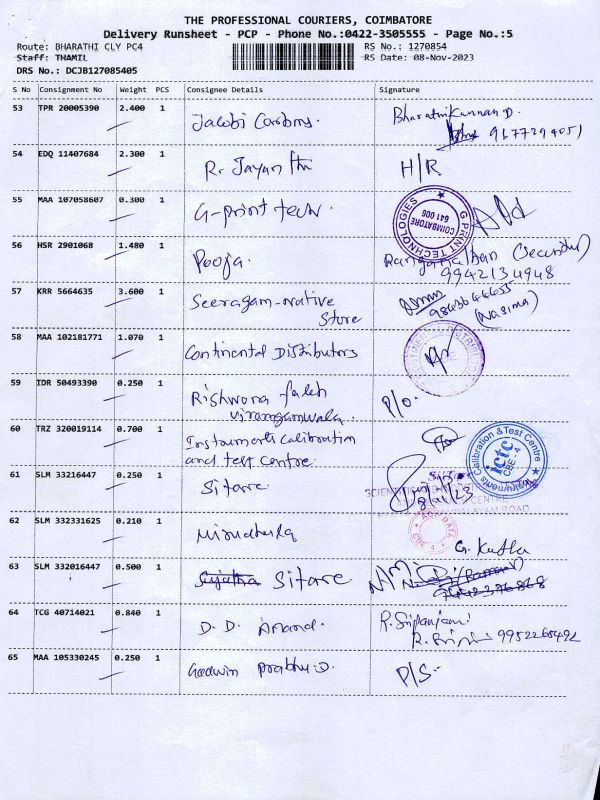 THE PROFESSIONAL COURIERS, COIMBATORE
Delivery Runsheet - PCP - Phone No.:0422-3505555 - Page No.:5
Route: BHARATHI CLY PC4 RS No.: 1270854
Staff: THAMIL RS Date: 08-Nov-2023
DRS No.: DCJB127085405
S No Consignment No Weight PCS Consignee Details Signature
53 TPR 20005390 2.400 1 Jacobi Carbons. Bharathikannan D.
54 EDQ 11407684 2.300 1 R. Jayanthi H/R
55 MAA 107058607 0.300 1 G-print tech. G PRINT TECHNOLOGIES COIMBATORE 641 006
56 HSR 2901068 1.480 1 Pooja. (Security)
9942134948
57 KRR 5664635 3.600 1 Seeragam-native
Store (Nasima)
58 MAA 102181771 1.070 1 Continental Distributors
59 IDR 50493390 0.250 1 Rishwona P/O.
Viramgamwala.
60 TRZ 320019114 0.700 1 Instruments Calibration
and test Centre. Instruments Calibration & Test Centre ictc CBE - 4
61 SLM 33216447 0.250 1 Sitare
62 SLM 332331625 0.210 1 G. Kutla
63 SLM 332016447 0.500 1 Sitare
64 TCG 40714021 0.840 1 D. D. Anand. R. Sripanjami
9952265492
65 MAA 105330245 0.250 1 Goodwin prabhu.D. P/S-